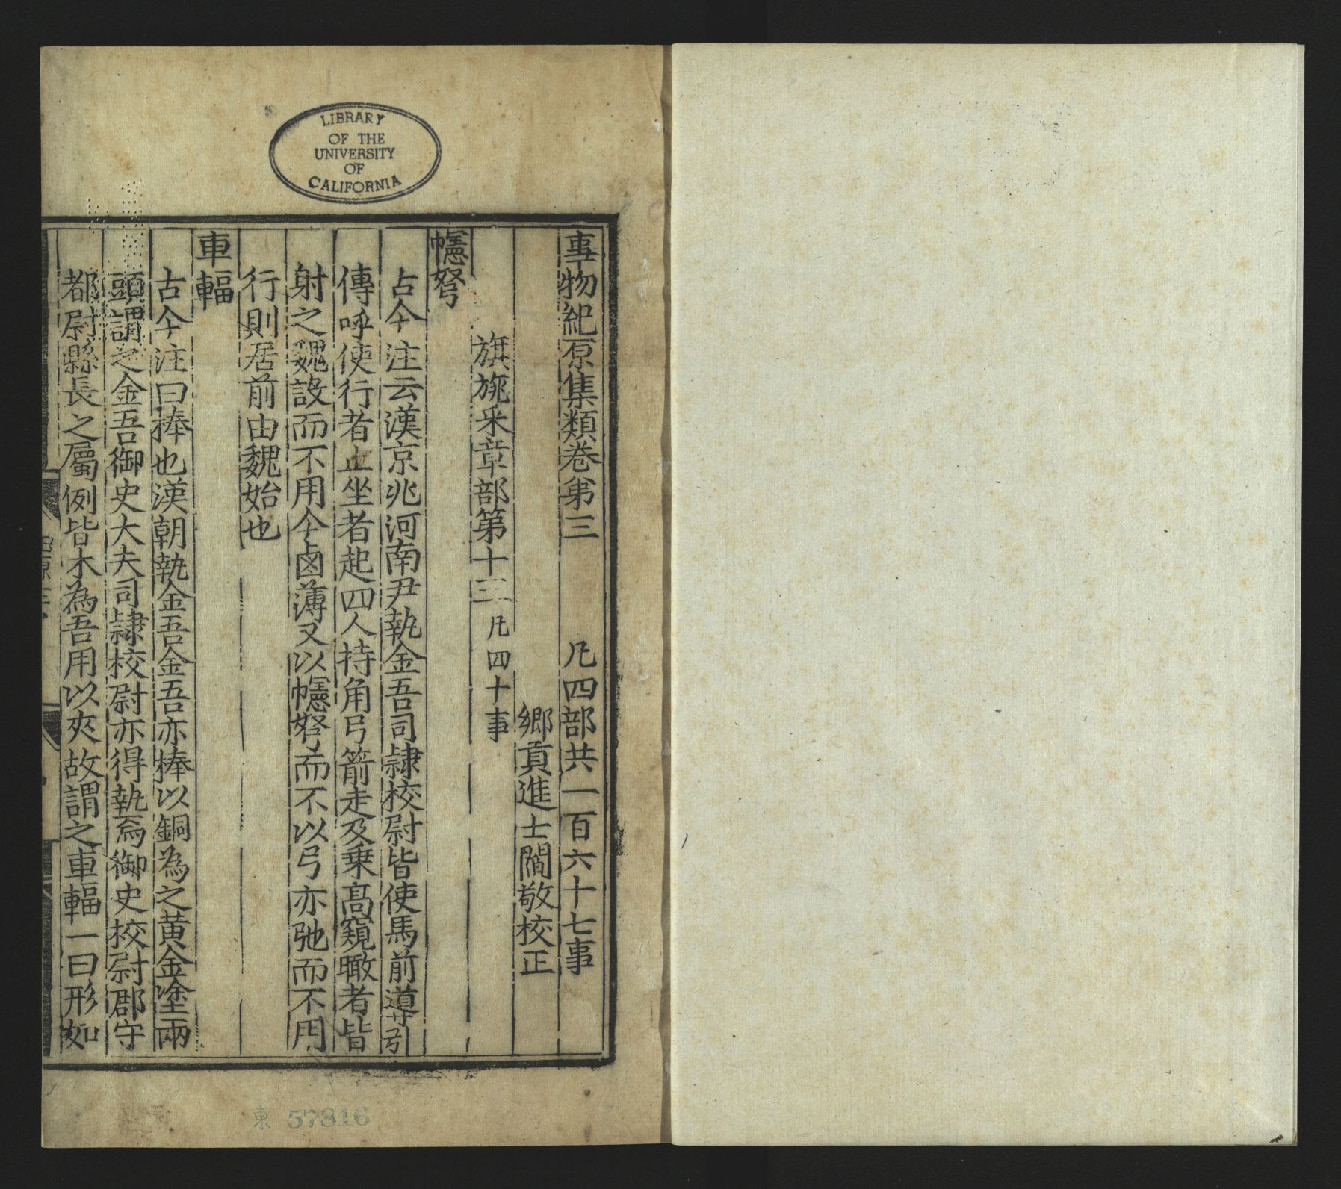 LIBRARY
OF THE
UNIVERSITY
OF
CALIFORNIA
事物紀原集類卷第三 凡四部共一百六十七事
鄉貢進士閻敬校正
旗旐采章部第十三 凡四十事
幰弩
古今注云漢京兆河南尹執金吾司隸校尉皆使馬前導引
傳呼使行者止坐者起四人持角弓箭走及乗高窺瞰者皆
射之魏設而不用今鹵薄又以幰弩而不以弓亦弛而不用
行則居前由魏始也
車輻
古今注曰捧也漢朝執金吾金吾亦棒以銅為之黄金塗兩
頭謂之金吾御史大夫司隸校尉亦得執焉御史校尉郡守
都尉縣長之屬例皆木為吾用以夾故謂之車輻一曰形如
東 57816